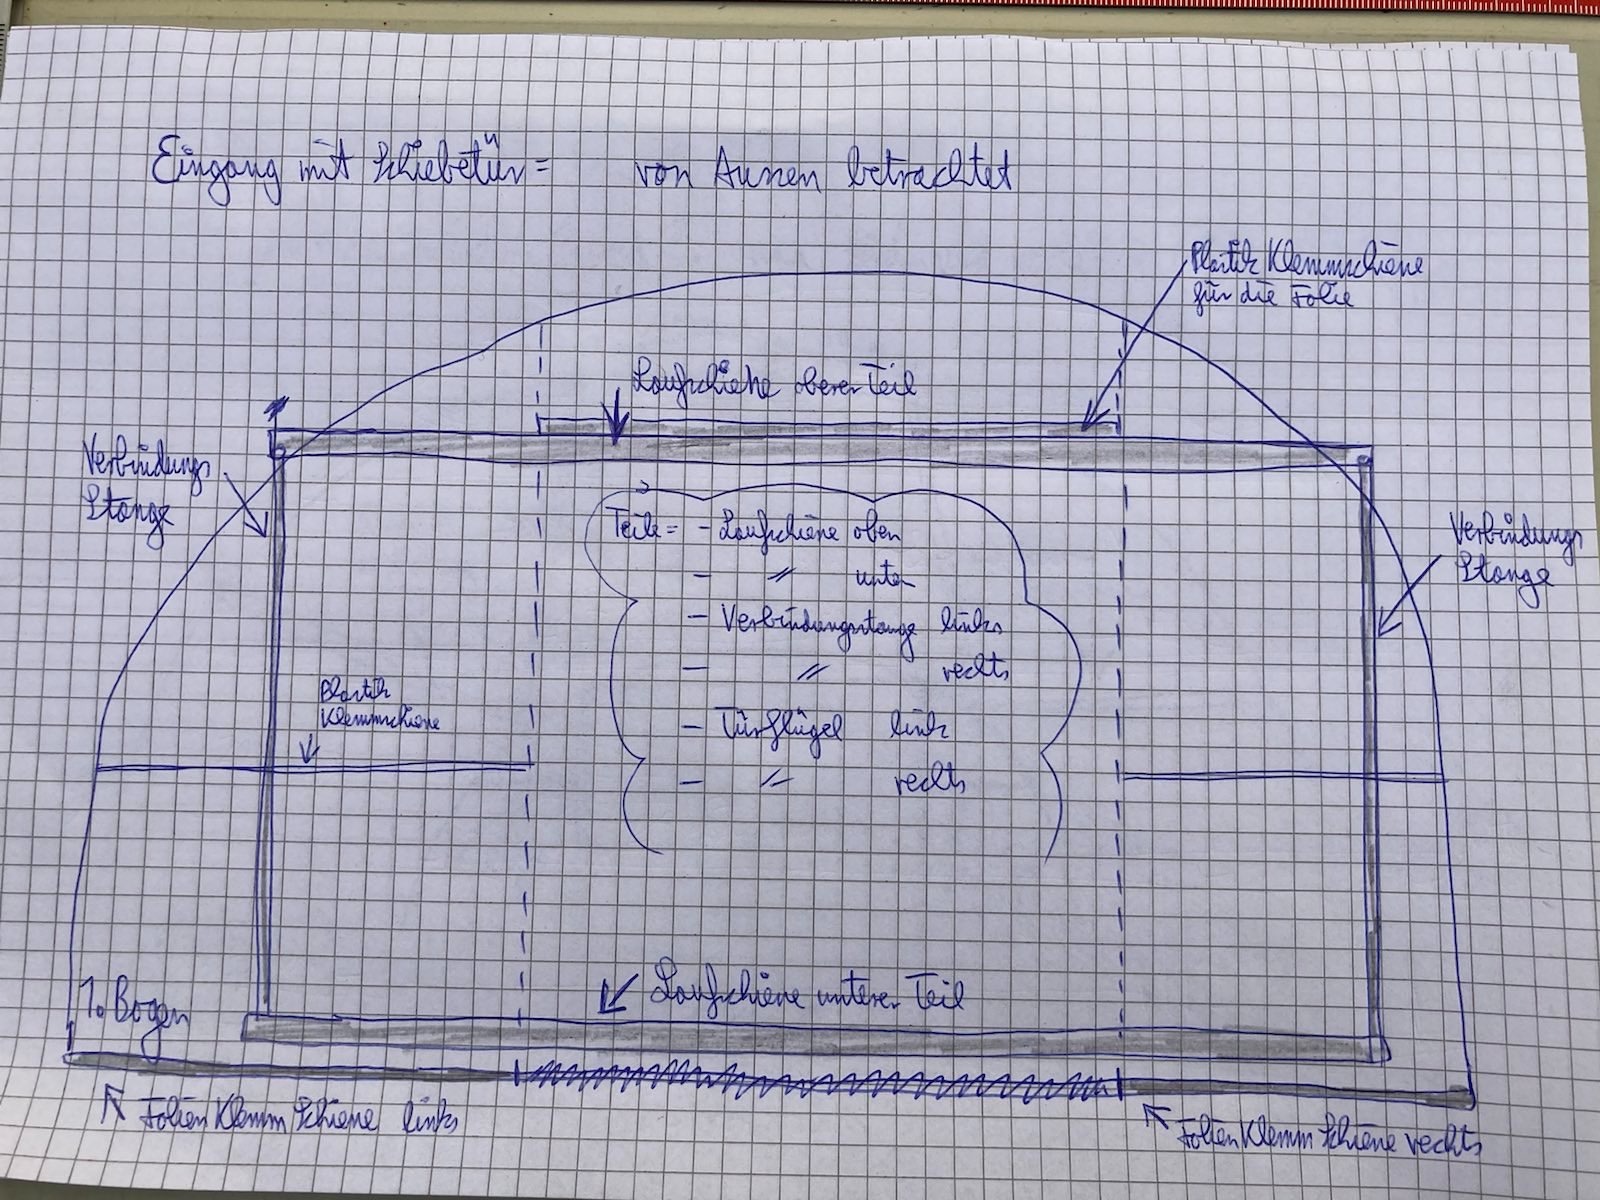 Eingang mit Schiebetür = von Aussen betrachtet
Plastik Klemmschiene
für die Folie
Laufschiene oberer Teil
Verbindungs
Stange
Verbindungs
Stange
Teile = - Laufschiene oben
-〃 unten
- Verbindungsstange links
- 〃 rechts
- Türflügel link
- 〃 rechts
Plastik
Klemmschiene
Laufschiene unterer Teil
1. Bogen
Folien Klemm Schiene links
Folien Klemm Schiene rechts